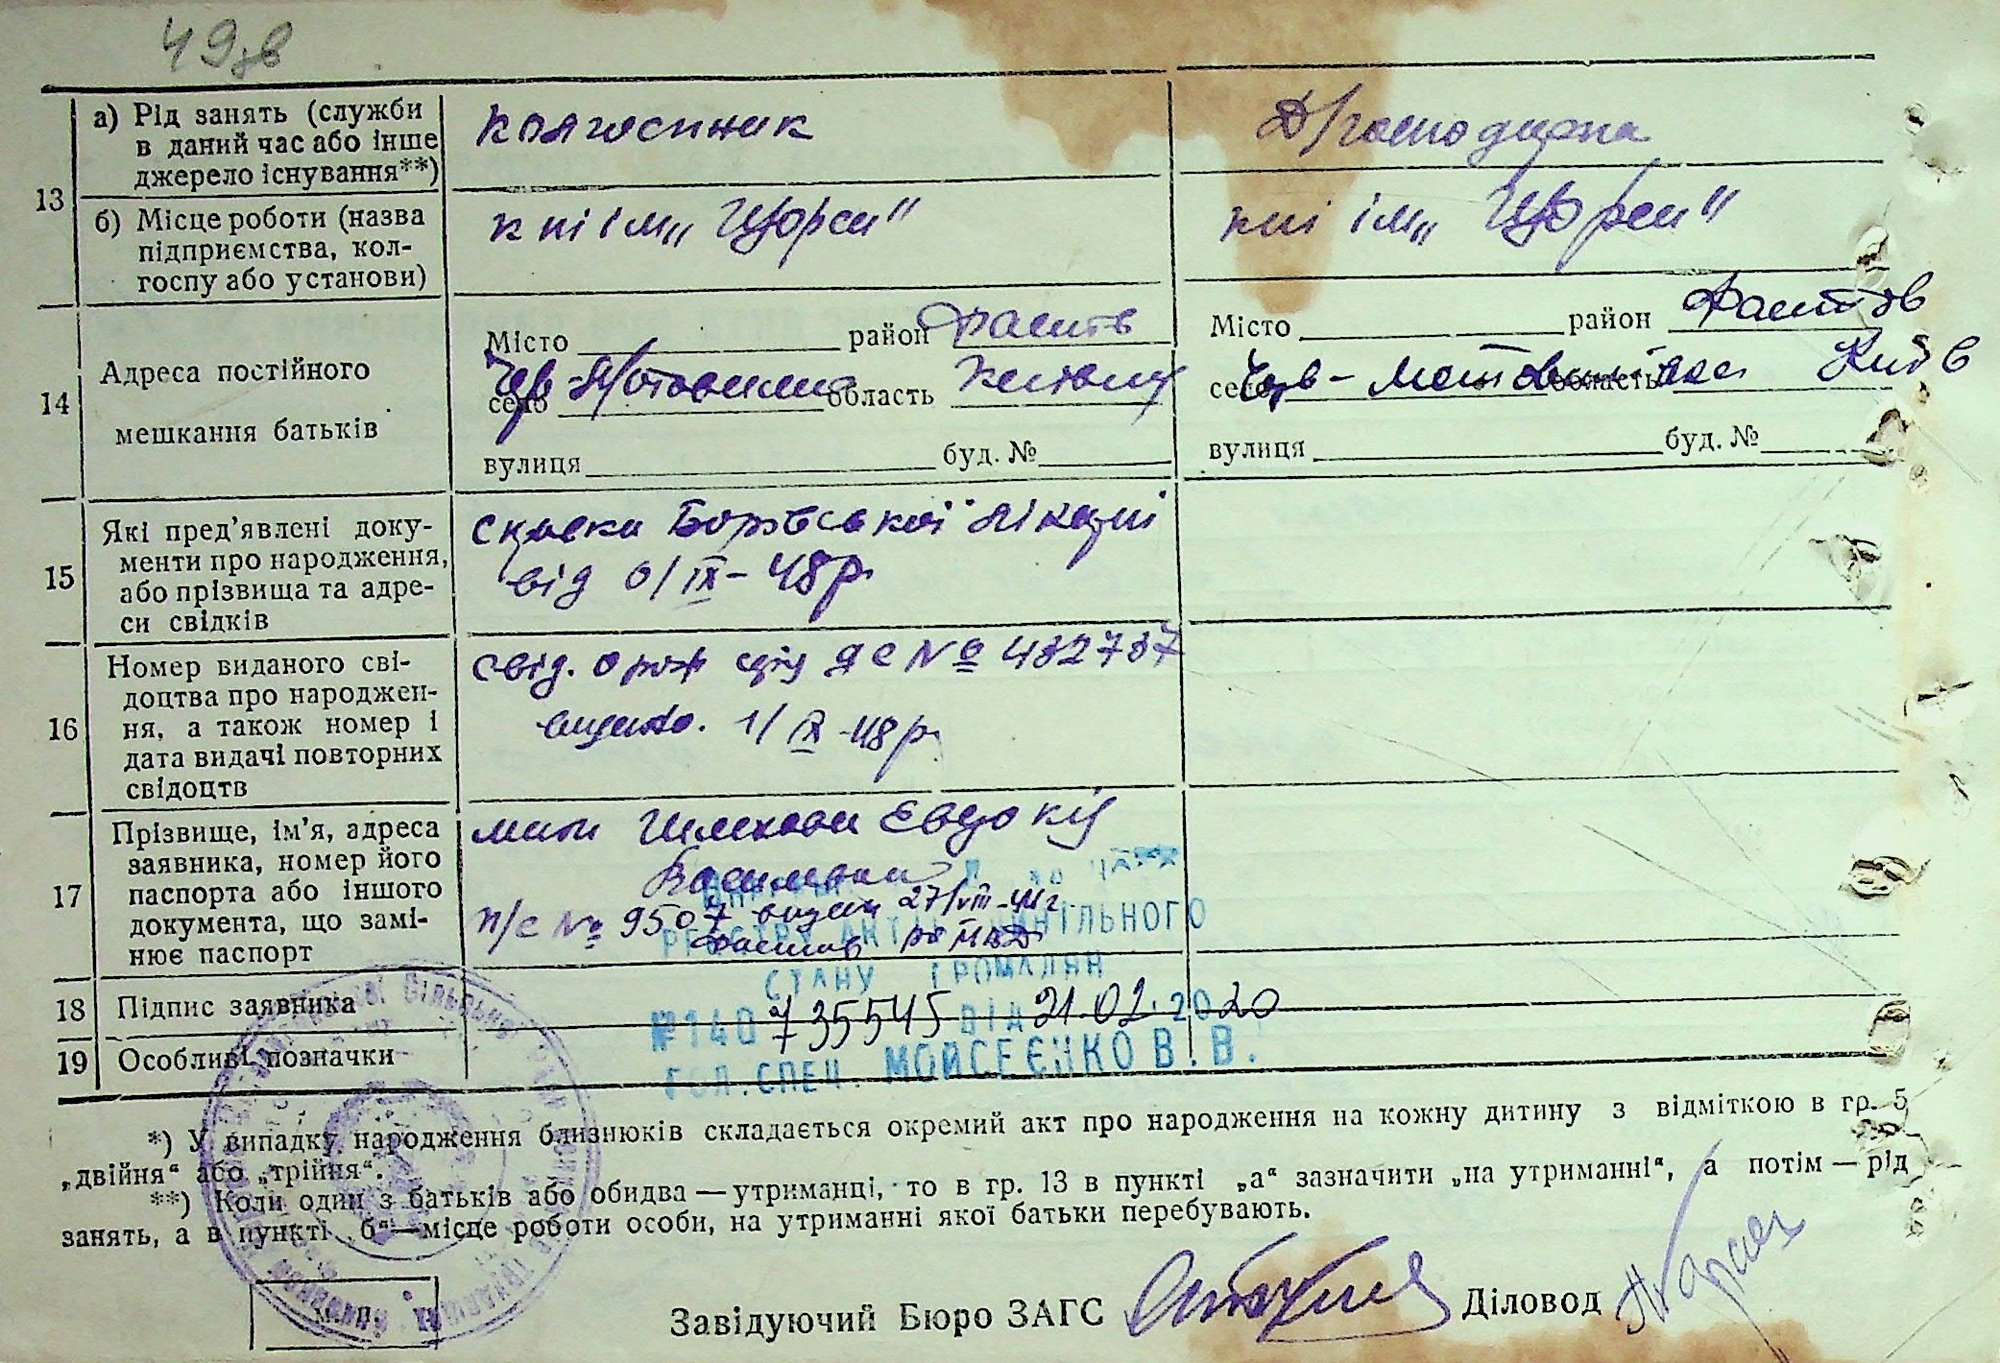 49зв
13
а) Рід занять (служби
в даний час або інше
джерело існування**)
колгоспник
Д/господарка
б) Місце роботи (назва
підприємства, кол-
госпу або установи)
к-п ім „Щорса"
к-п ім „Щорса"
14
Адреса постійного
мешкання батьків
Місто район Фастів
село Чер-Мотовилівка область Київська
вулиця буд. №
Місто район Фастов
село Черв-Мотовилівка область Київ
вулиця буд. №
15
Які пред'явлені доку-
менти про народження,
або прізвища та адре-
си свідків
справка Борівської лікарні
від 01/IX-48р.
16
Номер виданого сві-
доцтва про народжен-
ня, а також номер і
дата видачі повторних
свідоцтв
свід. о рож № 432737
видано. 1/IX-48р.
17
Прізвище, ім'я, адреса
заявника, номер його
паспорта або іншого
документа, що замі-
нює паспорт
мати Євдокія
Василівна
п/с № 9507 видан 27/VIII-44г.
Фастів
РЕЄСТРУ АКТІВ ЦИВІЛЬНОГО
СТАНУ ГРОМАДЯН
18 Підпис заявника
№140 735545 ВІД 21.02.2020
19 Особливі позначки
ГОЛ.СПЕЦ. МОЙСЕЄНКО В.В.
*) У випадку народження близнюків складається окремий акт про народження на кожну дитину з відміткою в гр. 5
„двійня" або „трійня".
**) Коли один з батьків або обидва — утриманці, то в гр. 13 в пункті „а" зазначити „на утриманні", а потім — рід
занять, а в пункті „б" — місце роботи особи, на утриманні якої батьки перебувають.
М.П.
Завідуючий Бюро ЗАГС Діловод